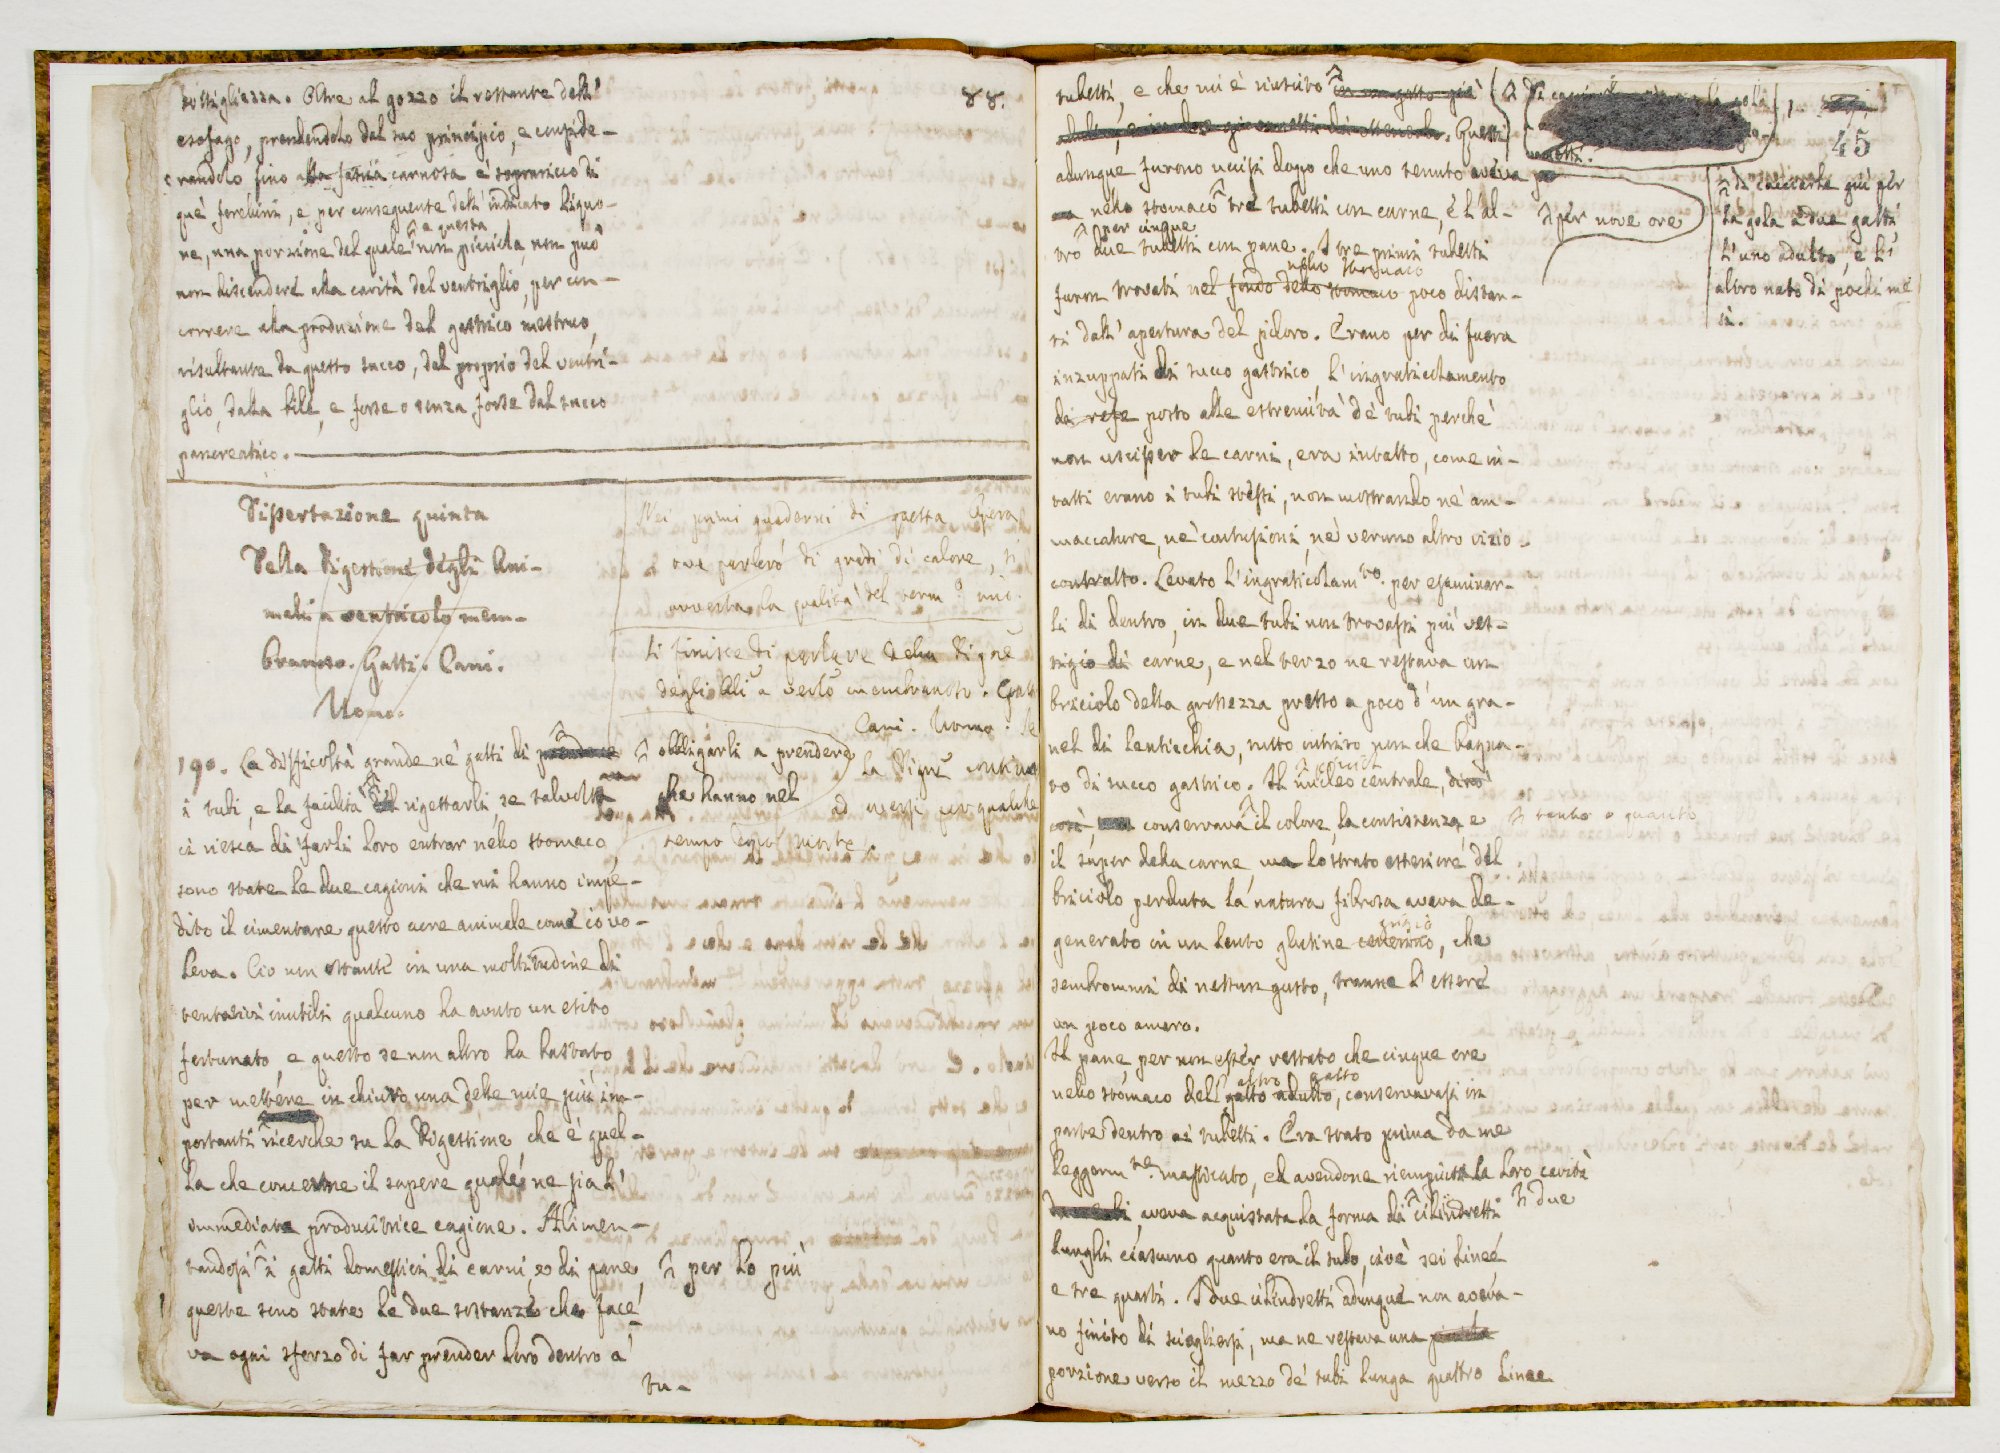 88.
sottigliezza. Oltre al gozzo il restante dell'
esofago, prendendolo dal suo principio, e conside-
randolo fino alla fascia carnosa è sopraricco di
que' forellini, e per conseguente dell' indicato liquo-
a questa
re, una porzione del quale non picciola, non può
non discendere alla cavità del ventriglio, per con-
correre alla produzione del gastrico mestruo,
risultante da questo succo, del proprio del ventri-
glio, dalla bile, e forse o senza forse dal succo
pancreatico.
Dissertazione quinta
Della Digestione degli Ani-
mali a ventricolo mem-
branoso. Gatti. Cani.
Uomo.
Nei primi quaderni di questa Opera
ove parlerò di gradi di calore, si
avverta la qualità del term.º
Si finisce di parlare della Digne
degli Ali a vento membranoso.
Cani. Uomo.
190. La difficoltà grande ne' gatti di prendere
i tubi, e la facilità di rigettarli, se talvolta
ci riesca di farli loro entrar nello stomaco,
sono state le due cagioni che mi hanno impe-
dito il cimentare questo acre animale come io vo-
leva. Ciò non ostante in una moltitudine di
tentativi inutili qualcuno ha avuto un esito
fortunato, e questo se non altro ha bastato
per mettere in chiaro una delle mie più im-
portanti ricerche su la Digestione, che è quel-
la che concerne il sapere quale ne sia l'
immediata produttrice cagione. Alimen-
tandosi i gatti domestici di carni, e di pane,
queste sono state le due sostanze che face-
va ogni sforzo di far prender loro dentro a'
tu-
obbligarli a prendere
che hanno nel
la Digne continua
ad aversi per qualche
tempo dopo morte.
per lo più
45
tubetti, e che mi è riuscito in un gatto già
Questi
adunque furono uccisi dopo che uno tenuto aveva
nello stomaco tre tubetti con carne, e l'al-
per cinque
tro due tubetti con pane. I tre primi tubetti
nello stomaco
furon trovati nel fondo dello stomaco poco distan-
ti dall' apertura del piloro. Erano per di fuora
inzuppati di succo gastrico. L'ingraticolamento
di refe posto alle estremità de' tubi perchè
non uscisser le carni, era intatto, come in-
tatti erano i tubi stessi, non mostrando nè am-
maccature, nè contusioni, nè veruno altro vizio
contratto. Levato l'ingraticolam.to per esaminar-
li di dentro, in due tubi non trovassi più ves-
tigio di carne, e nel terzo ne restava un
briciolo della grossezza presso a poco d'un gra-
nel di lenticchia, tutto intriso non che bagna-
to di succo gastrico. Il nucleo centrale, dirò
così, conservava il colore, la consistenza, e
il sapor della carne, ma lo strato esteriore del
briciolo perduta la natura fibrosa aveva de-
generato in un lento glutine cenerino, che
sembrommi di nessun gusto, tranne l'essere
un poco amaro.
Il pane per non esser restato che cinque ore
altro gatto
nello stomaco dell' gatto adulto, conservavasi in
parte dentro ai tubetti. Era stato prima da me
leggerm.te masticato, ed avendone riempiuta la loro cavità
aveva acquistata la forma di cilindretti
lunghi ciascuno quanto era il tubo, cioè sei linee
e tre quarti. I due cilindretti adunque non aveva-
no finito di sciogliersi, ma ne restava una picciola
porzione verso il mezzo de' tubi lunga quattro linee
per nove ore
di cacciarle giù per
la gola a due gatti,
l'uno adulto, e l'
altro nato di pochi me
si.
tanto o quanto
due